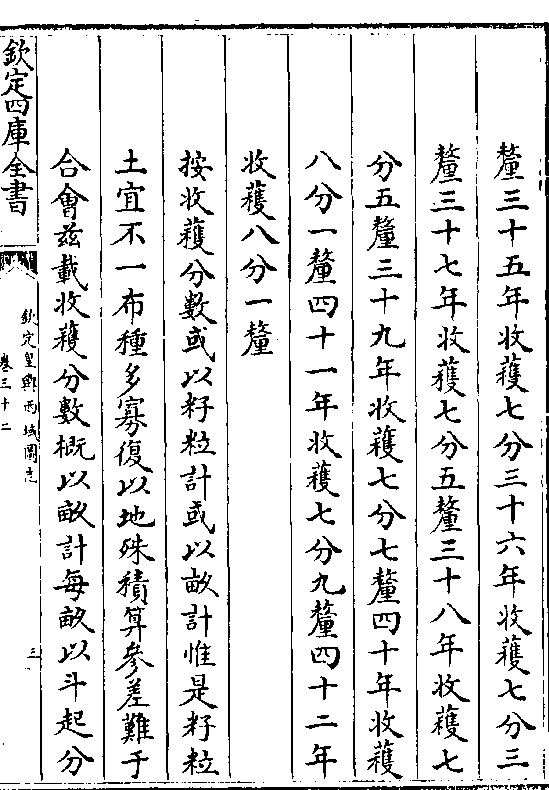 釐三十五年收蓷七分三十六年收蓷七分三
釐三十七年收蓷七分五釐三十八年收蓷七
分五釐三十九年收蓷七分七釐四十年收蓷
八分一釐四十一年收蓷七分九釐四十二年
收蓷八分一釐
按收蓷分數或以籽粒計或以畝計惟是籽粒
土宜不一布種多寡復以地殊積算參差難于
合會茲載收蓷分數概以畝計每畝以斗起分
欽定四庫全書
欽定皇輿西域圖志
卷三十二
三